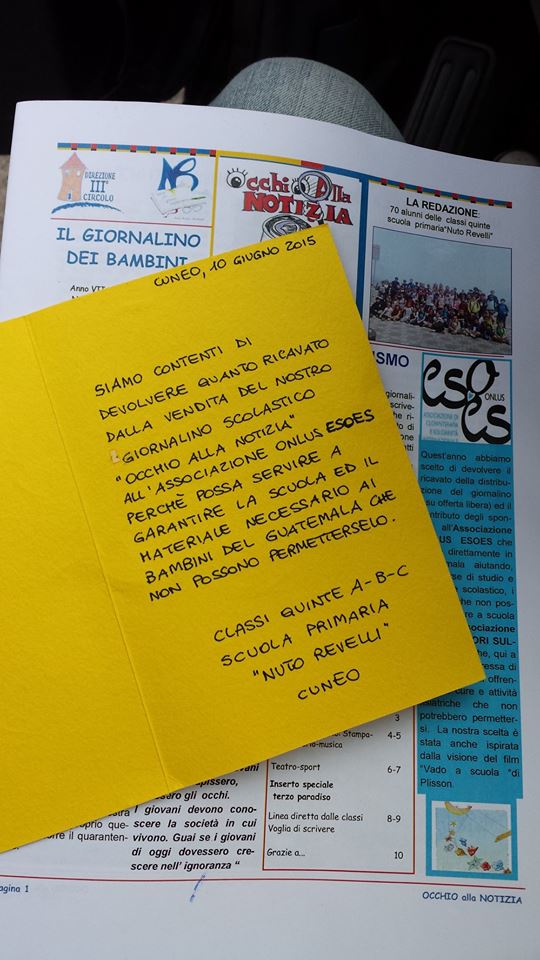 DIREZIONE
III°
CIRCOLO
Occhi alla
NOTIZIA
LA REDAZIONE:
70 alunni delle classi quinte
scuola primaria"Nuto Revelli"
IL GIORNALINO
DEI BAMBINI
CUNEO, 10 GIUGNO 2015
SIAMO CONTENTI DI
DEVOLVERE QUANTO RICAVATO
DALLA VENDITA DEL NOSTRO
GIORNALINO SCOLASTICO
"OCCHIO ALLA NOTIZIA"
ALL'ASSOCIAZIONE ONLUS ESOES
PERCHÈ POSSA SERVIRE A
GARANTIRE LA SCUOLA ED IL
MATERIALE NECESSARIO AI
BAMBINI DEL GUATEMALA CHE
NON POSSONO PERMETTERSELO.
CLASSI QUINTE A-B-C
SCUOLA PRIMARIA
"NUTO REVELLI"
CUNEO
ESOES
ONLUS
ASSOCIAZIONE DI
E SOLIDARIETÀ
Quest'anno abbiamo
scelto di devolvere il
ricavato della distribu-
zione del giornalino
su offerta libera) ed il
ntributo degli spon-
all'Associazione
US ESOES che
direttamente in
mala aiutando,
se di studio e
scolastico, i
che non pos-
re a scuola
ssociazione
ORI SUL-
che, qui a
ressa di
offren-
cure e attività
iatriche che non
potrebbero permetter-
si. La nostra scelta è
stata anche ispirata
dalla visione del film
"Vado a scuola "di
Plisson.
3
Stampa-
musica
4-5
Teatro-sport
6-7
Inserto speciale
terzo paradiso
Linea diretta dalle classi
8-9
Voglia di scrivere
Grazie a...
10
pissero,
sero gli occhi.
I giovani devono cono-
scere la società in cui
vivono. Guai se i giovani
di oggi dovessero cre-
scere nell' ignoranza "
agina 1
OCCHIO alla NOTIZIA